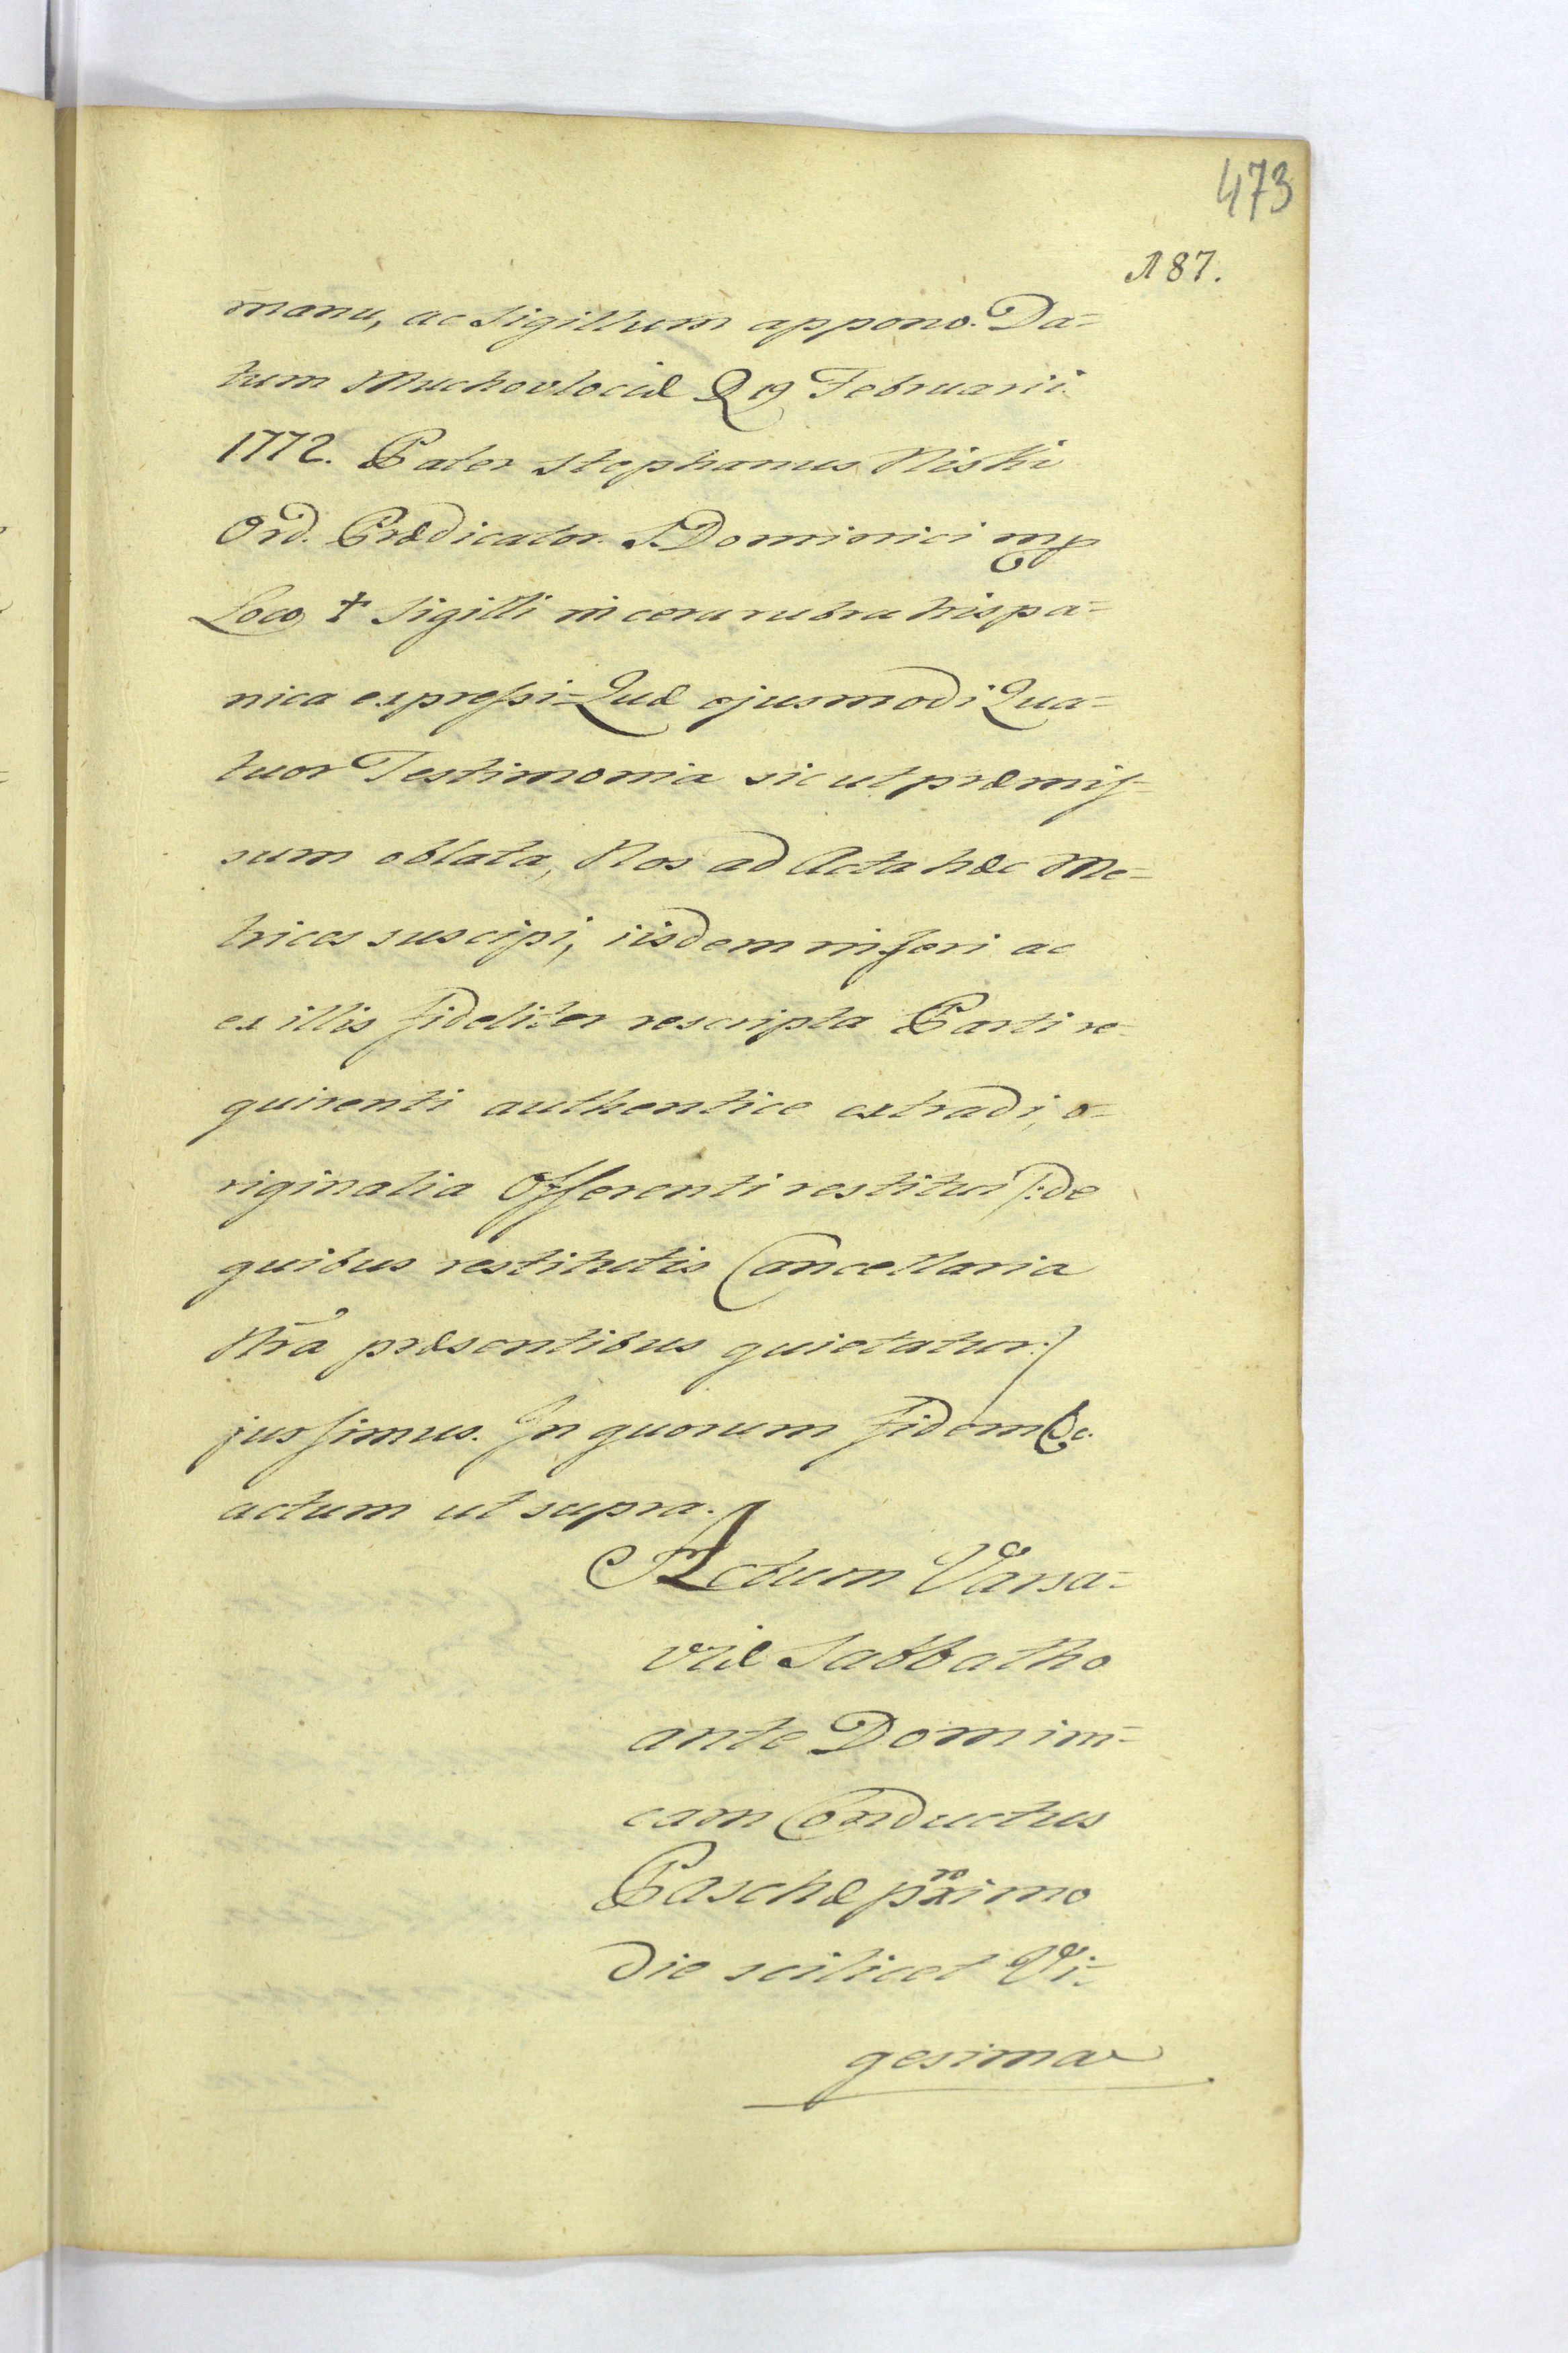 473
187.
manu, ac Sigillum appono. Da=
tum Muchovlociæ 29 Februarii
1772. Pater Stephanus Niski
Ord. Prædicator. S. Dominici mp
Loco † Sigilli in cera rubra hispa=
nica expressi=Quæ ejusmodi Qua=
tuor Testimonia sic ut præmis=
sum oblata, Nos ad Acta hæc Me=
trices suscipi, iisdem inseri ac
ex illis fideliter rescripta Parti re=
quirenti authentice extradi, o=
riginalia Offerenti restitui /:de
quibus restitutis Cancellaria
Nrã præsentibus quietatur:/
jussimus. In quorum fidem &c.
actum ut supra.
Actum Varsa=
viæ Sabbatho
ante Domini=
cam Conductus
Paschæ proximo
die scilicet Vi=
gesima